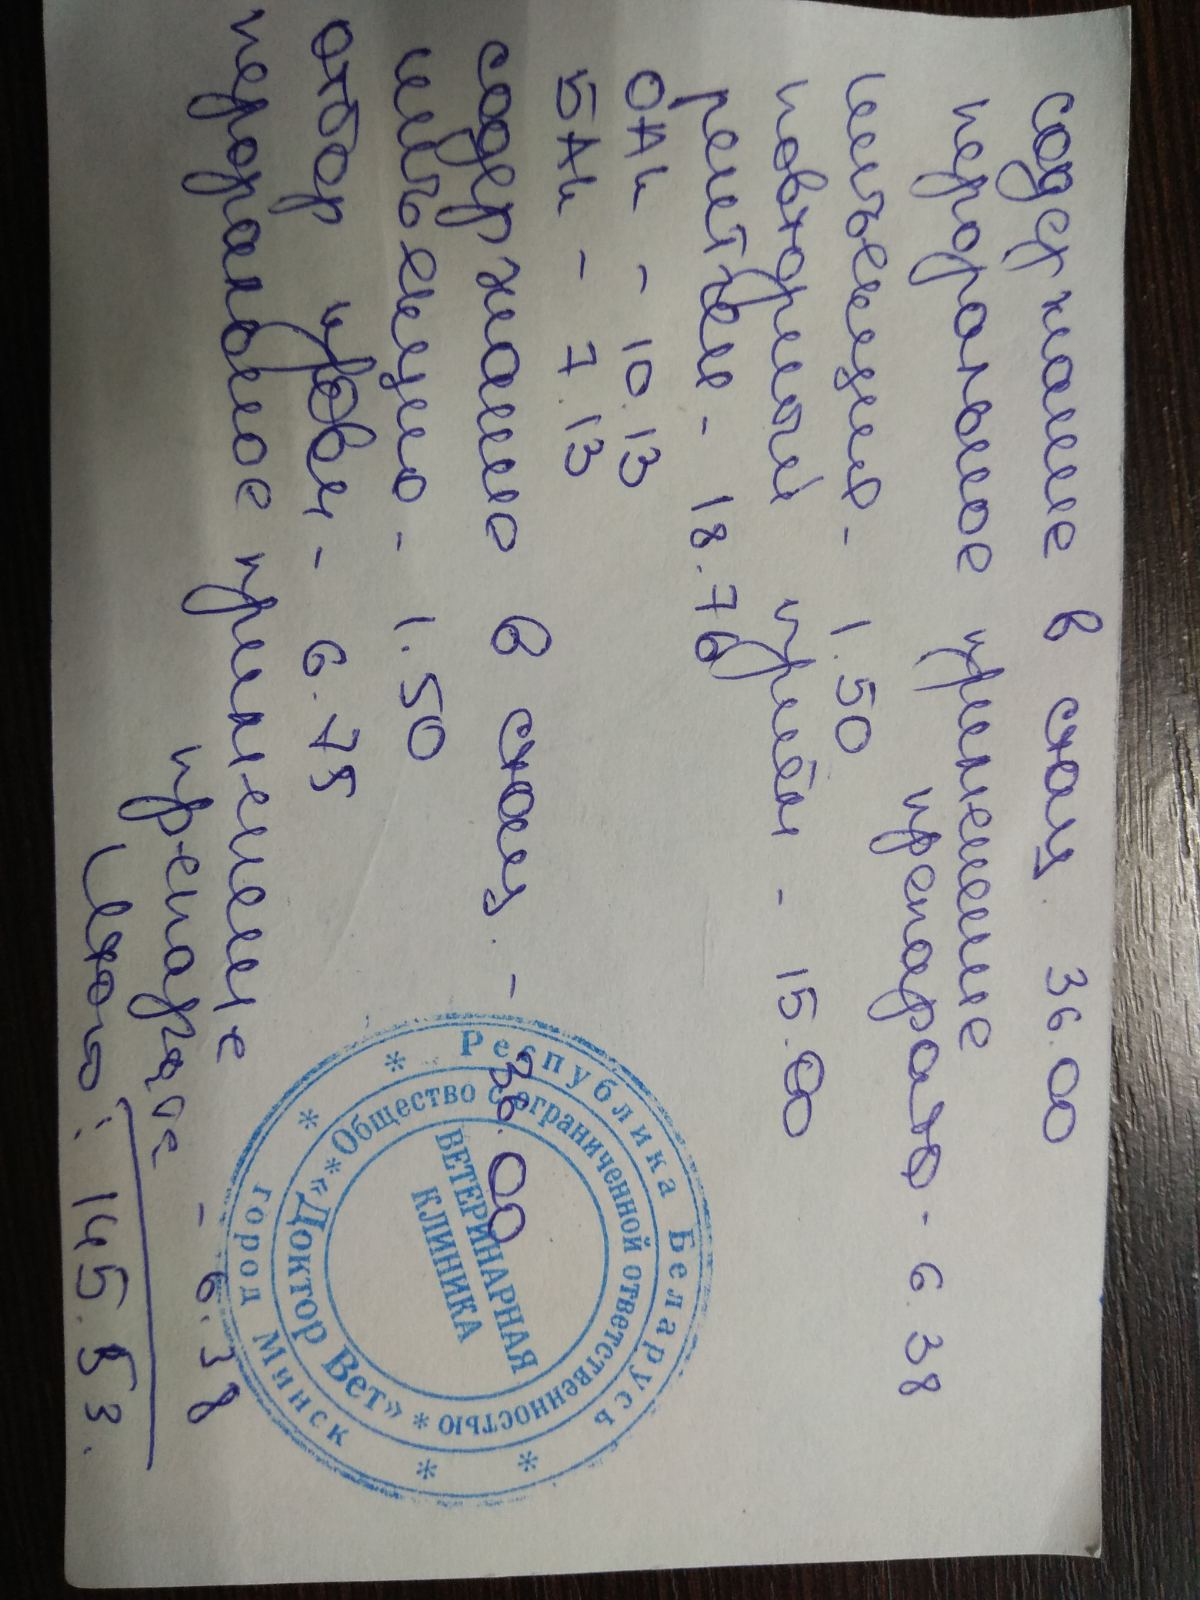 содержание в стац 36.00
пероральное применение
препарата - 6.38
инъекция - 1.50
повторный приём - 15.00
рентген - 18.76
ОАК - 10.13
БАК - 7.13
содержание в стац. - 36.00
инъекция - 1.50
отбор крови - 6.75
пероральное применение
препарата - 6.38
Итого: 145.53.
Республика Беларусь
* Общество с ограниченной ответственностью *
«Доктор Вет»
город Минск
ВЕТЕРИНАРНАЯ
КЛИНИКА